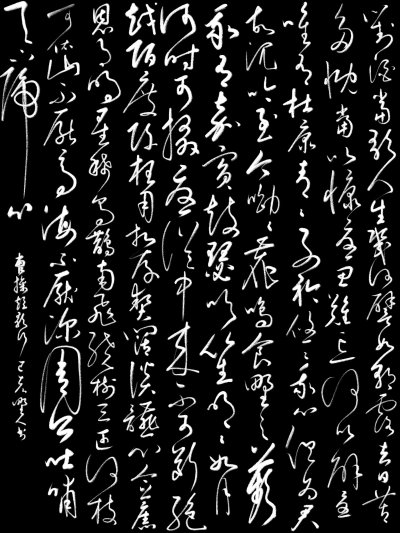 對酒當歌人生幾何譬如朝露去日苦
多慨當以慷憂思難忘何以解憂
唯有杜康青青子衿悠悠我心但为君
故沉吟至今呦呦鹿鳴食野之蘋
我有嘉賓鼓瑟吹笙明明如月
何时可掇憂從中來不可斷絕
越陌度阡枉用相存契闊談讌心念舊
恩月明星稀烏鵲南飛繞樹三匝何枝
可依山不厭高海不厭深周公吐哺
天下歸心
曹操短歌行己亥书